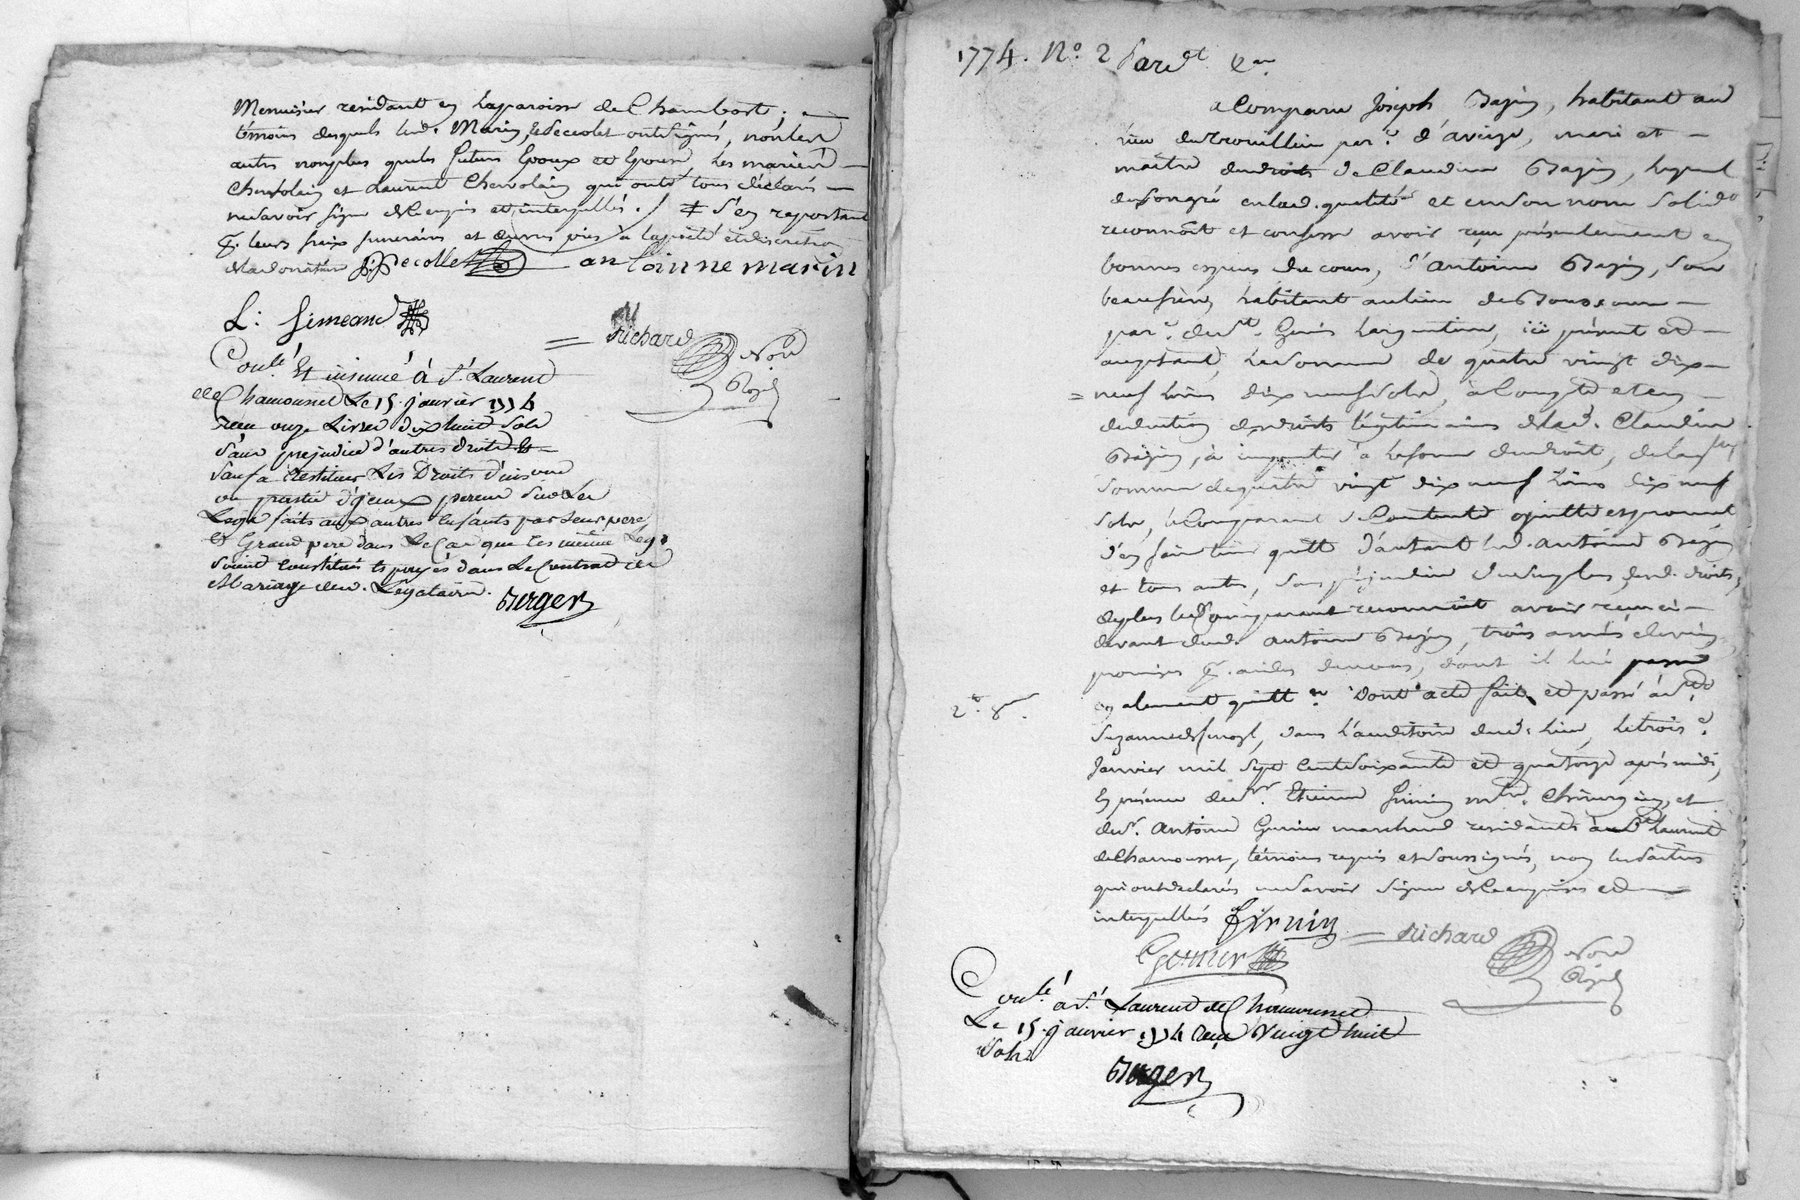 Menuisier residant en laparoisse de Chambost ;
témoins desquels led. Marin, & Decolet ont signé, non les
autres non plus que les futurs Epoux et Epouse, les mariés
Chervolain et Laurent Chervolain qui ont tous déclarés
ne savoir signer de ce enquis et interpellés. / # S'en reportant
p. leurs fraix funeraires et œuvres pies à la pieté et discretion
P. Decollet antoinne marin
L: Simeand Richard
Nore Royal
Conlé Et insinué à St. Laurent
de Chamousset Le 15. janvier 1774
reçu onze Livres dix huit sols
sans prejudice d'autres droits &
sauf à restituer Les Droits d'insion
en partie d'yceux perçus sur Les
Legs faits aux autres enfants par leur pere
& Grand pere dans Le Cas que les mêmes Legs
soient constitués & payés dans Le Contrat de
Mariage de Légataire.
Berger
1774. No. 2
a Comparu Joseph Bazin, habitant au
lieu du Trouillin par.e d'aveize, mari et
maitre des droits de Claudine Bazin, lequel
de son gré en lad. qualité et en son nom solid.
reconnoit et confesse avoir reçu présentement en
bonnes especes de cours, d'Antoine Bazin, son
beaufrere habitant au lieu de
par.e de St. Genis Largentiere, ici présent et
acceptant, la somme de quatre vingt dix
neuf livres dix neuf sols, à Compte et en
deduction des droits légitimaires de lad. Claudine
Bazin, à imputer à la forme du droit, de laq.
somme de quatre vingt dix neuf livres dix neuf
sols, le Comparant se Contente & quitte et promet
d'en faire tenir quitte d'autant led. Antoine Bazin
et tous autres, sans préjudice du surplus desd. droits,
de plus led. Comparant reconnoit avoir reçu ci
devant dud. Antoine Bazin, trois
promises p. dont il lui passe
également quitt.ce Dont acte fait et passé à
dans l'auditoire dud. lieu, le trois.e
Janvier mil sept cent soixante et quatorze après midi,
En présence de sr. Etienne Firnin mtre. Chirurgien, et
de sr. Antoine marchand residants à St Laurent
de Chamousset, témoins requis et soussignés, non les parties
qui ont declarés ne savoir signer de ce enquises et
interpellés Firnin Richard
Nore Royal
2e. Eon.
Conlé à St. Laurent de Chamousset
Le 15. janvier 1774 reçu Vingt huit
sols
Berger